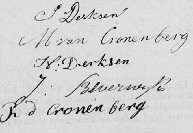 J Derksen
M van Cronenberg
N. Derksen
J. Beverwijk
R d Cronenberg